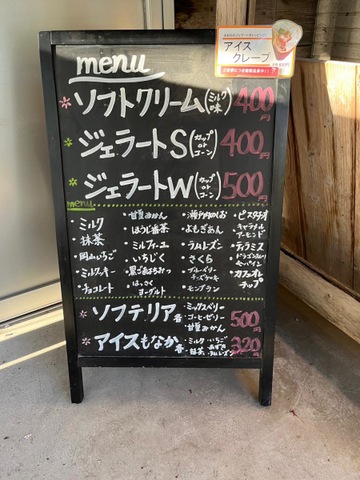 menu
アイス
クレープ
ソフトクリーム(ミルク味) 400円
ジェラートS(カップorコーン) 400円
ジェラートW(カップorコーン) 500円
menu
・ミルク
・抹茶
・岡山いちご
・ミルクッキー
・チョコレート
・甘夏みかん
・ほうじ番茶
・ミルフィーユ
・いちじく
・黒ごまはちみつ
・はっさくヨーグルト
・瀬戸内のしお
・よもぎあん
・ラムレーズン
・さくら
・ブルーベリーチーズケーキ
・モンブラン
・ピスタチオ
・キャラメルアーモンド
・ティラミス
・カフェオレ
ソフテリア各 500円
・ミックスベリー
・コーヒーゼリー
・甘夏みかん
アイスもなか各 320円
・ミルク ・いちご
・抹茶 ・あずき
・ラムレーズン